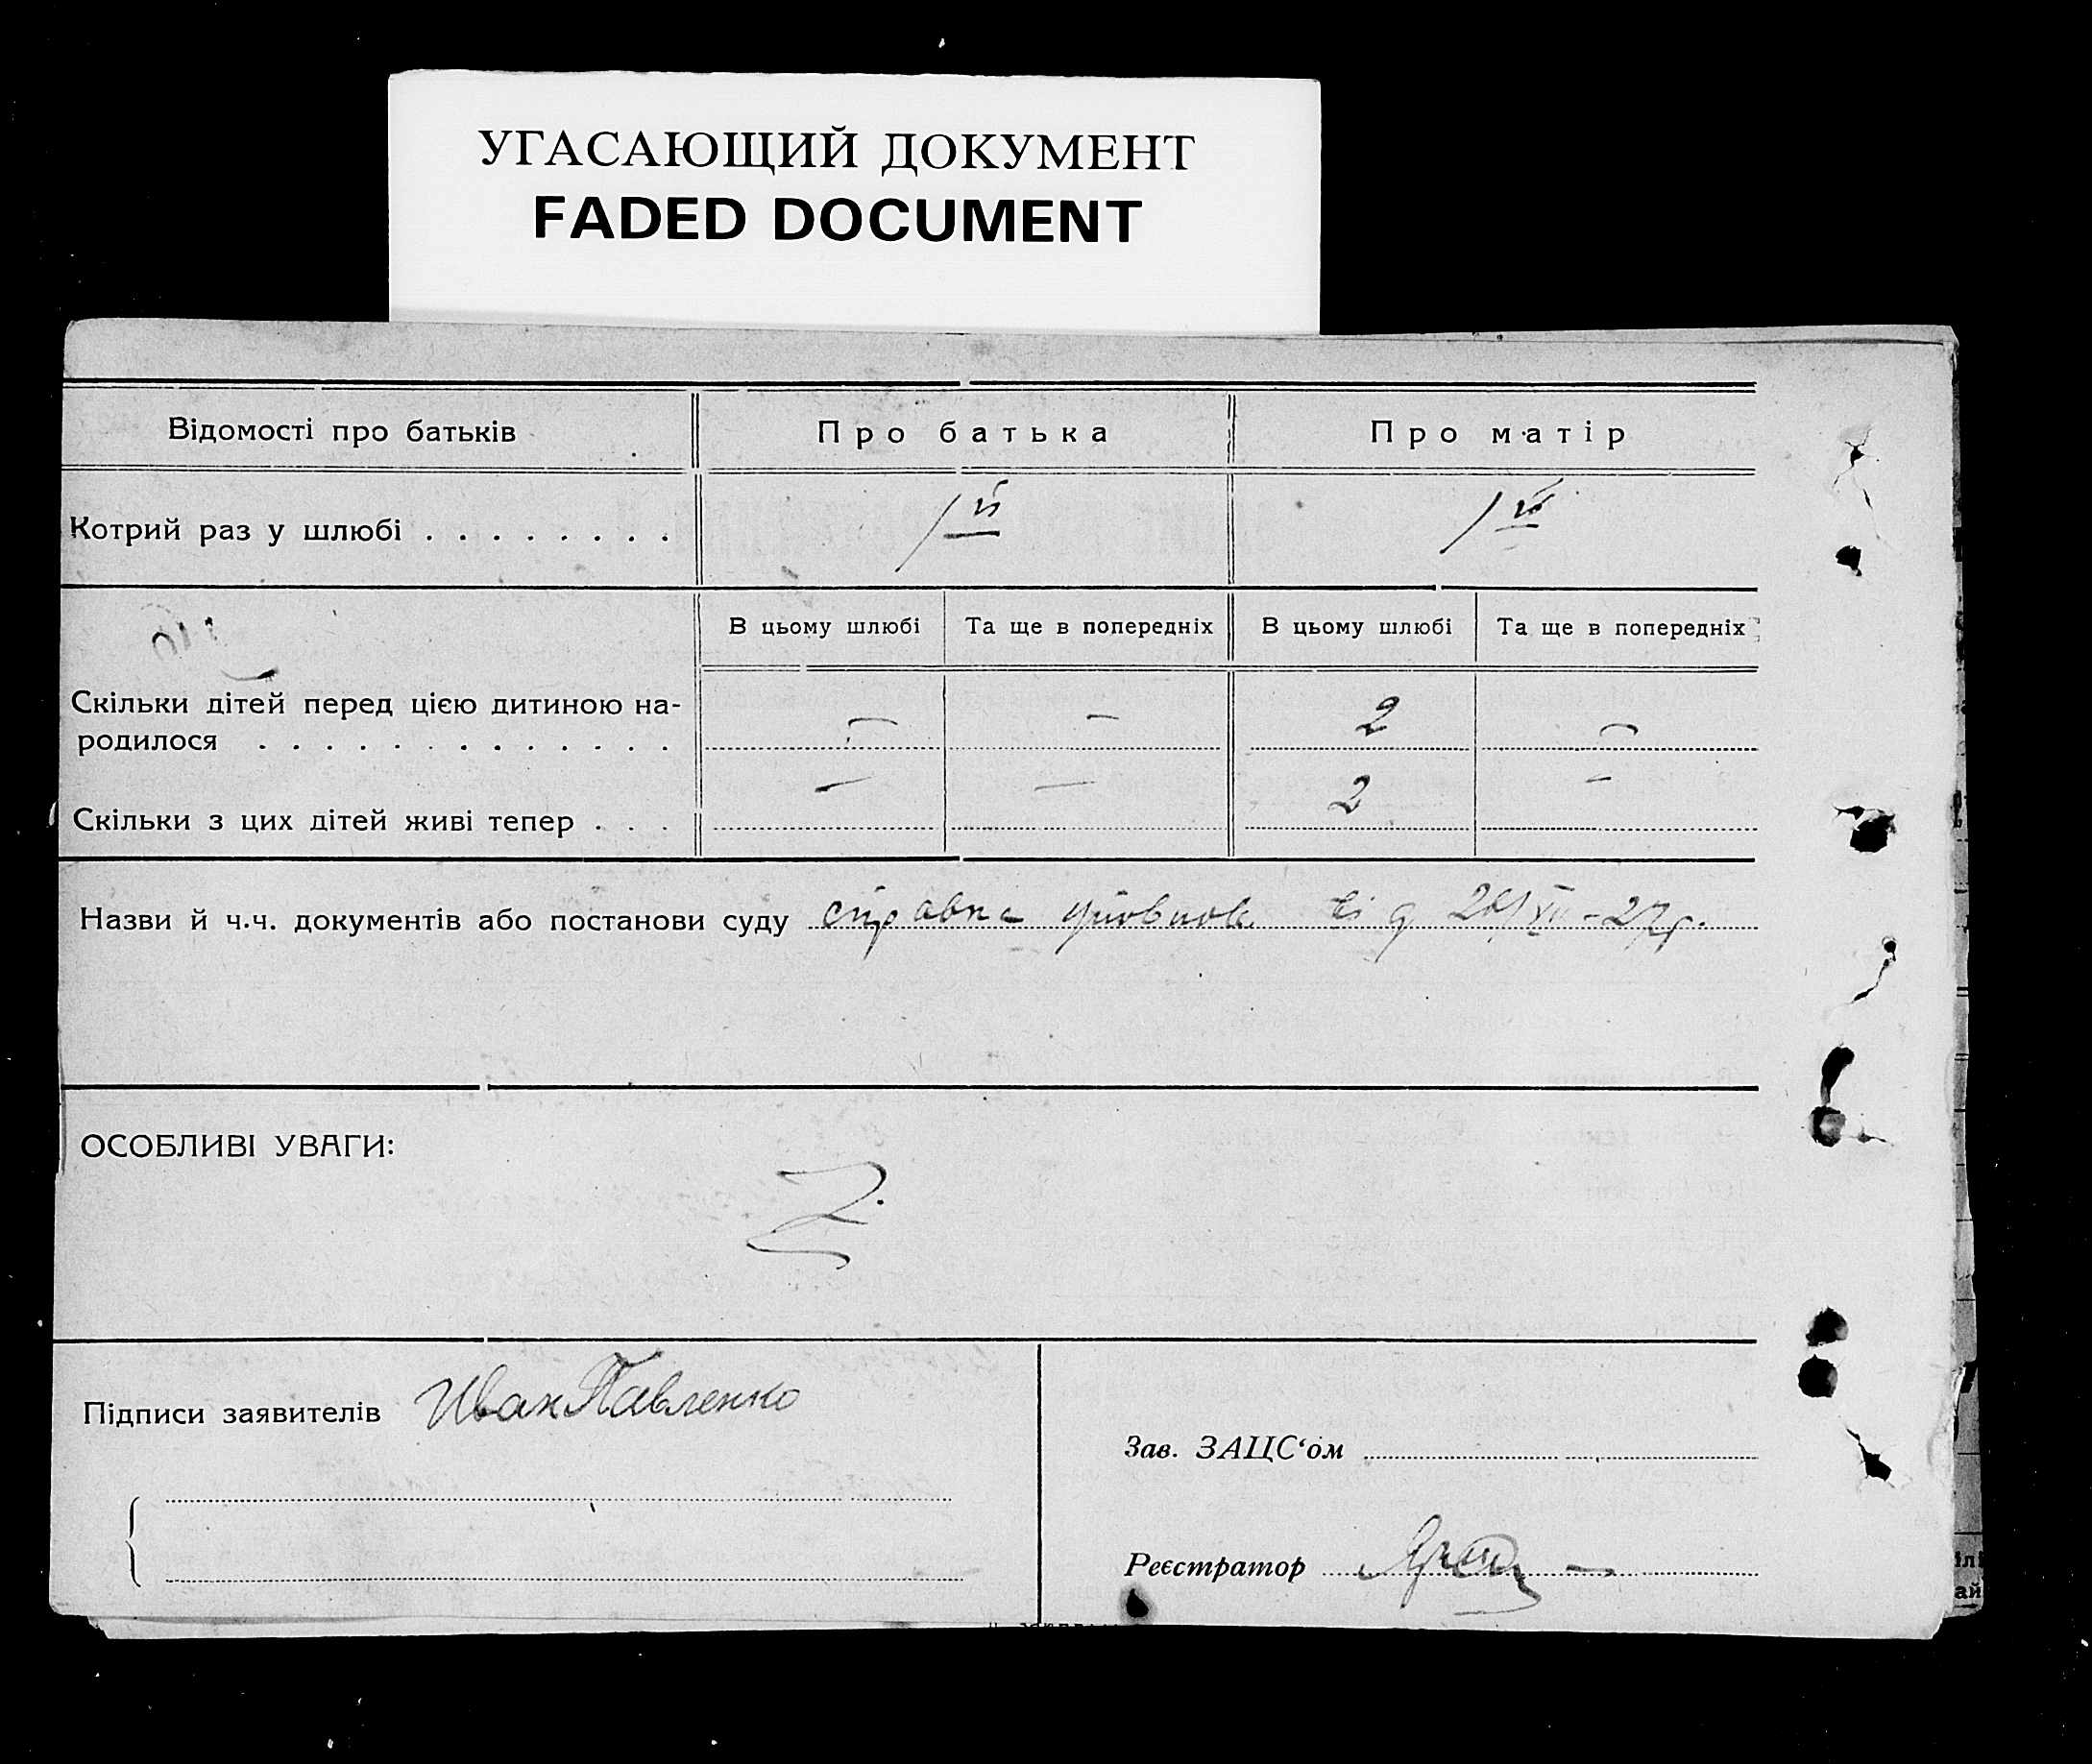 УГАСАЮЩИЙ ДОКУМЕНТ
FADED DOCUMENT
Відомості про батьків
Про батька
Про матір
Котрий раз у шлюбі . . . . . . . .
1й
1й
В цьому шлюбі
Та ще в попередніх
В цьому шлюбі
Та ще в попередніх
Скільки дітей перед цією дитиною на-
родилося . . . . . . . . . . . . .
— — 2 —
Скільки з цих дітей живі тепер . . .
— — 2 —
Назви й ч.ч. документів або постанови суду від
ОСОБЛИВІ УВАГИ:
Підписи заявителів Иван Павленко
Зав. ЗАЦС‘ом
Реєстратор